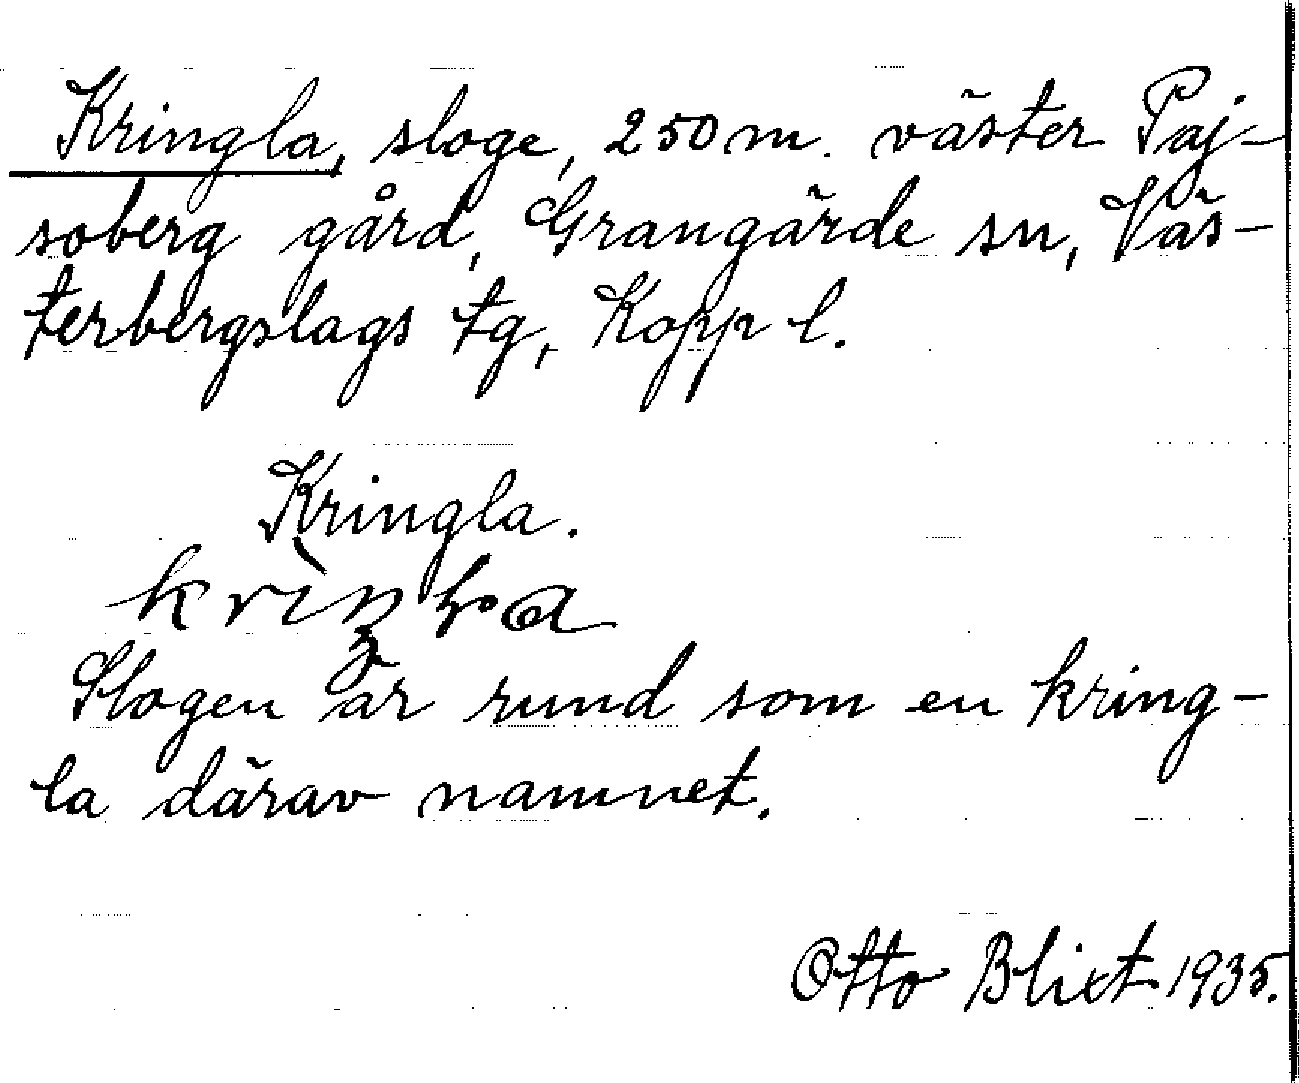 Kringla, sloge, 250 m. väster Paj-
soberg gård, Grangärde sn, Väs-
terbergslags tg, Kopp l.
Kringla.
Slogen är rund som en kring-
la därav namnet.
Otto Blixt 1935.